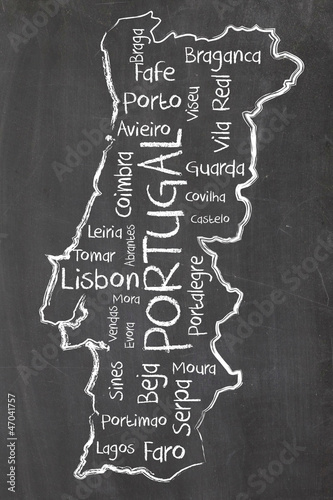 Braga
Braganca
Fafe
Porto
Viseu
Vila Real
Avieiro
Guarda
Coimbra
PORTUGAL
Covilha
Castelo
Leiria
Abrantes
Tomar
Lisbon
Portalegre
Mora
Vendas
Evora
Sines
Beja
Moura
Serpa
Portimao
Lagos
Faro
Adobe Stock | #47041757